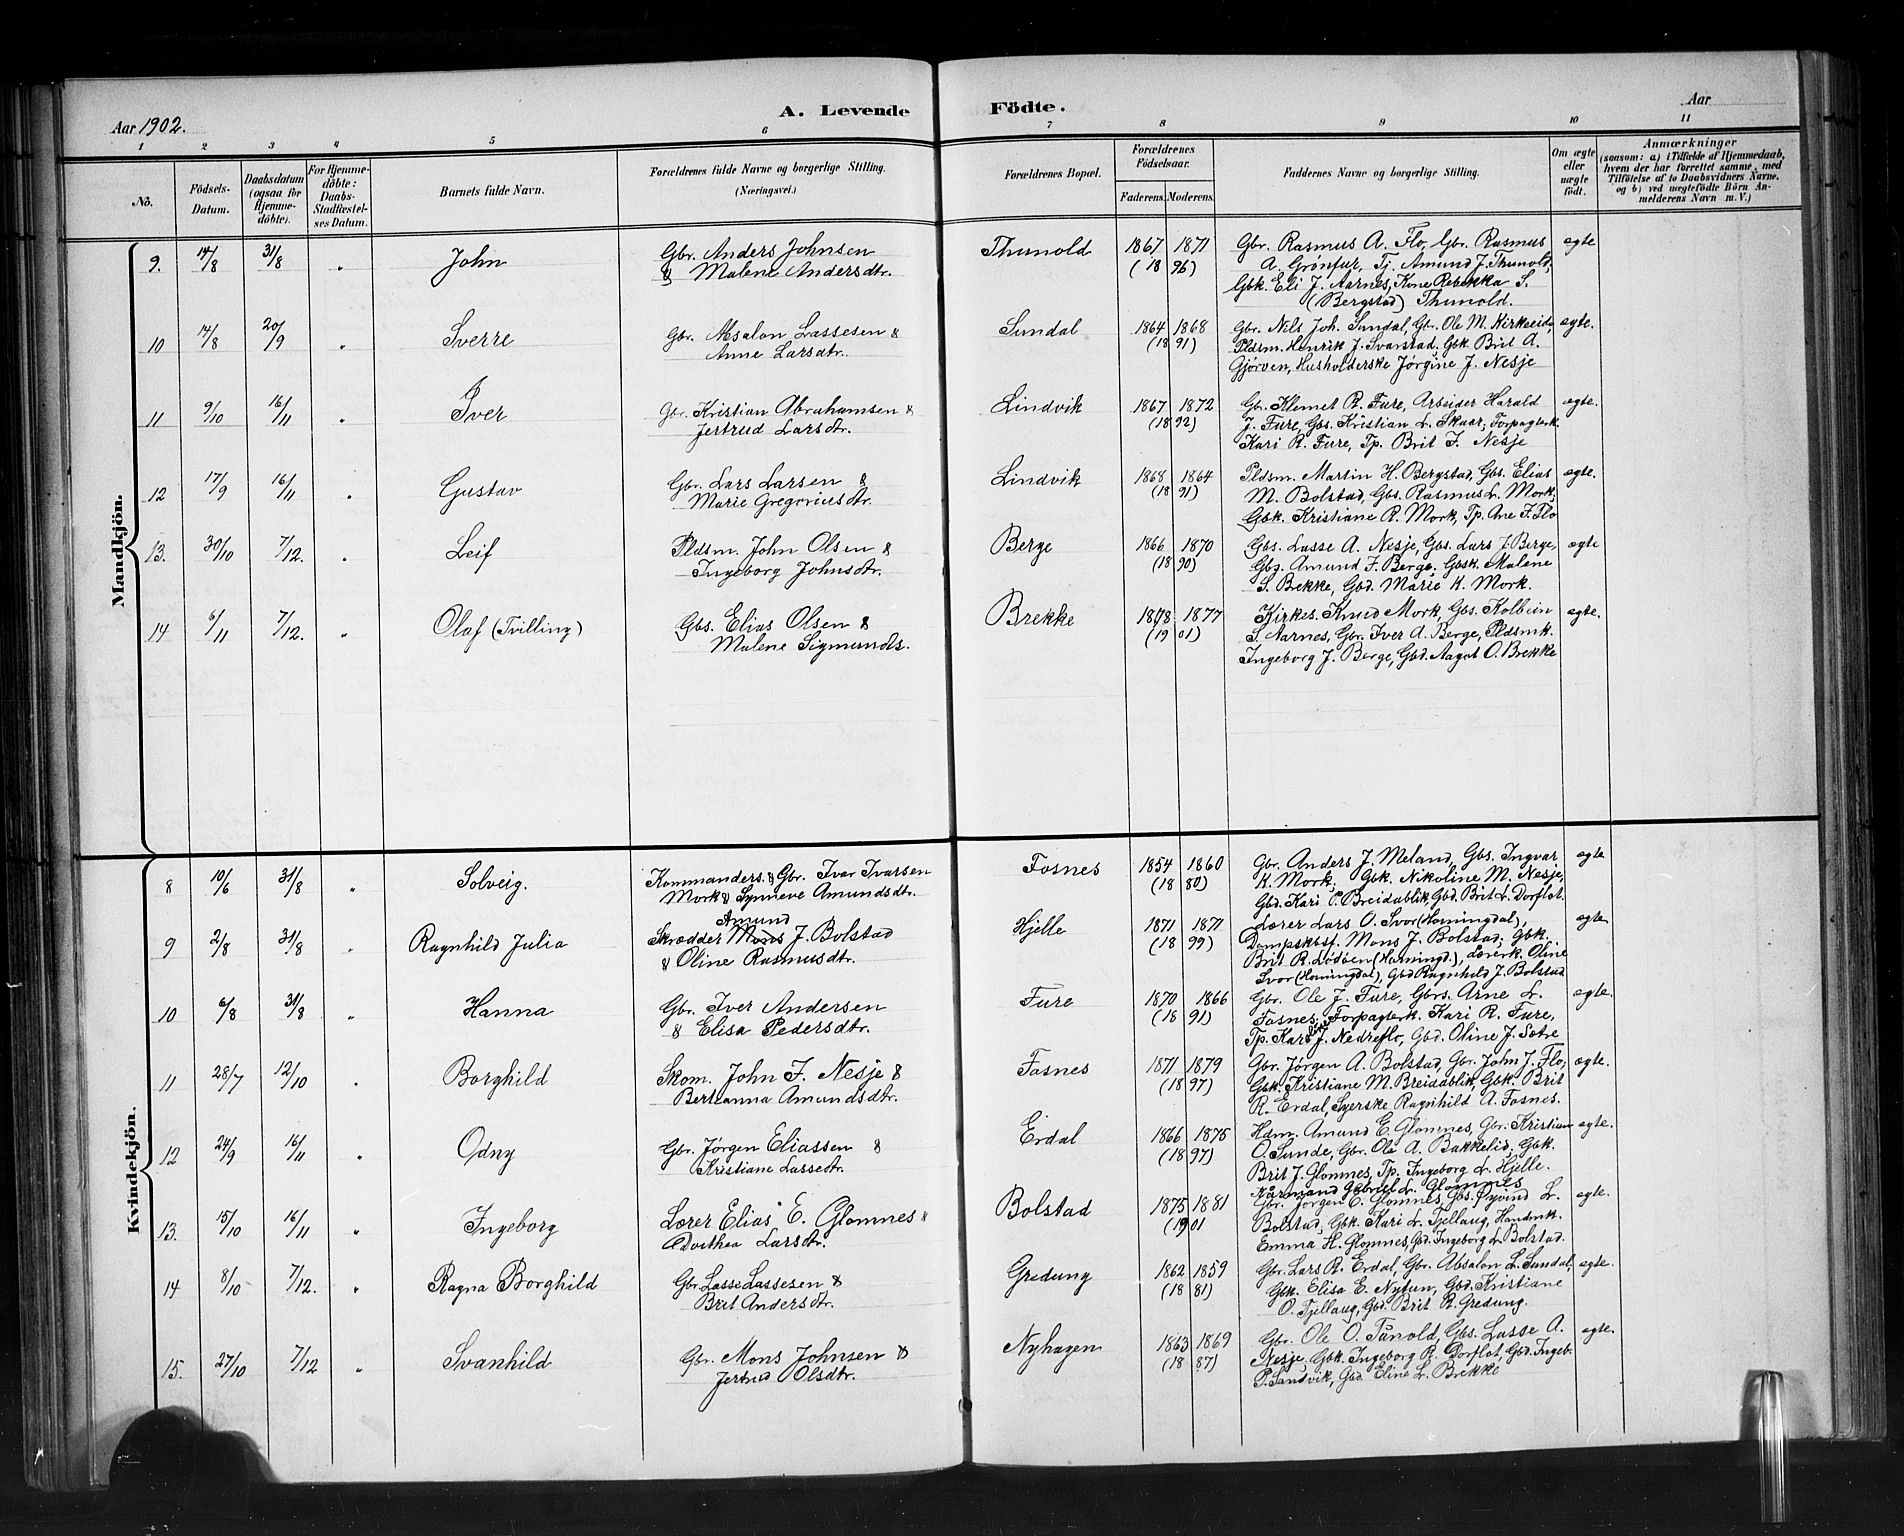 Aar 1902.
A. Levende Födte.
Aar
1 2 3 4 5 6 7 8 9 10 11
No.
Födsels-Datum.
Daabsdatum (ogsaa for Hjemme-döbte).
For Hjemme-döbte: Daabs-Stadfæstel-ses Datum.
Barnets fulde Navn.
Forældrenes fulde Navne og borgerlige Stilling.
(Næringsvei.)
Forældrenes Bopæl.
Forældrenes Födselsaar.
Faderens. Moderens.
Faddernes Navne og borgerlige Stilling.
Om ægte eller uægte födt.
Anmærkninger
(saasom: a) i Tilfælde af Hjemmedaab, hvem der har forrettet samme, med Tilföielse af to Daabsvidners Navne. og b) ved uægtefödte Börn An-melderens Navn m. V.)
Mandkjön.
9. 14/8 31/8 " John Gbr. Anders Johnsen Thunold 1867 1871 Gbr. Rasmus A. Flo, Gbr. Rasmus ægte
& Malene Andersdtr. (18 96) A. Grønfur, Tj. Amund J. Thunold,
Gbk. Eli J. Aarnes, Kone Rebekka S.
(Bergstad) Thunold.
10 14/8 20/9 " Sverre Gbr. Absalon Lassesen & Sundal 1864 1868 Gbr. Nels Joh. Sundal, Gbr. Ole M. Kirkeeide, ægte.
Anne Larsdtr. (18 91) Pldsm. Henrik J. Svarstad, Gbk. Brit A.
Gjørven, Husholderske Jørgine J. Nesje
11 9/10 16/11 " Iver Gbr. Kristian Abrahamsen & Lindvik 1867 1872 Gbr. Klemet R. Fure, Arbeider Harald ægte.
Jertrud Larsdtr. (18 92) J. Fure, Gbs. Kristian L. Skaar, Forpagterk.
Kari R. Fure, Tp. Brit J. Nesje
12 17/9 16/11 " Gustav Gbr. Lars Larsen & Lindvik 1868 1864 Pldsm. Martin H. Bergstad, Gbs. Elias ægte.
Marie Gregoriusdtr. (18 91) M. Bolstad, Gbs. Rasmus L. Mork,
Gbk. Kristiane R. Mork, Tp. Ane J. Flo
13. 30/10 7/12. " Leif Pldsm. John Olsen & Berge 1866 1870 Gbs. Lasse A. Nesje, Gbs. Lars J. Berge, ægte
Ingeborg Johnsdtr. (18 90) Gbs. Amund J. Berge, Gbsk. Malene
S. Bekke, Gbd. Marie K. Mork.
14 6/11 7/12. " Olaf (Tvilling) Gbs. Elias Olsen & Brekke 1878 1877 Kirkes. Knud Mork, Gbs. Kolbein ægte.
Malene Sigmunds. (19 01) S. Aarnes, Gbr. Iver A. Berge, Pldsmk.
Ingeborg J. Berge, Gbd. Aagot O. Brekke
Kvindekjön.
8 10/6 31/8 " Solveig. Kommanders. & Gbr. Ivar Ivarsen Fosnes 1854 1860 Gbr. Anders J. Meland, Gbs. Ingvar ægte
Mork & Synneve Amundsdtr. (18 80) K. Mork, Gbk. Nikoline M. Nesje,
Gbd. Kari P. Breidablik, Gbd. Brit L. Dorflot.
Amund
9 2/8 31/8 " Ragnhild Julia Skrædder Mons J. Bolstad Hjelle 1871 1871 Lærer Lars O. Svor (Horningdal), ægte
& Oline Rasmusdtr. (18 99) Dampskbsf. Mons J. Bolstad, Gbk.
Brit R. Lødøen (Horningd.), Lærerk. Oline
Svor (Horningdal), Gbd Ragnhild J. Bolstad
10 6/8 31/8 " Hanna Gbr. Iver Andersen Fure 1870 1866 Gbr. Ole J. Fure, Gbrs. Arne L. ægte.
& Elisa Pedersdtr. (18 91) Fosnes, Forpagterk. Kari R. Fure,
Tp. Karoline J. Nedreflo, Gbd. Oline J. Sætre
11 28/7 12/10 " Borghild Skom. John J. Nesje & Fosnes 1871 1879 Gbr. Jørgen A. Bolstad, Gbr. John J. Flo, ægte.
Berteanna Amundsdtr. (18 97) Gbk. Kristiane M. Breidablik, Gbk. Brit
R. Erdal, Syerske Ragnhild A. Fosnes.
12 24/9 16/11 " Odny Gbr. Jørgen Eliassen & Erdal 1866 1875 Hdm. Amund E. Glomnes, Gbr. Kristian ægte.
Kristiane Lassedtr. (18 97) O. Sunde, Gbr. Ole A. Bakkelid, Gbk.
Brit J. Glomnes, Tp. Ingeborg L. Hjelle.
Gabriel L. Glomnes
13. 15/10 16/11 " Ingeborg Lærer Elias E. Glomnes & Bolstad 1875 1881 Gbr. Jørgen E. Glomnes, Gbs. Øyvind L. ægte.
Dorthea Larsdtr. (1901 Bolstad, Gbk. Kari L. Tjellaug, Handmk.
Emma H. Glomnes, Gbd. Ingeborg L. Bolstad.
14 8/10 7/12. " Ragna Borghild Gbr. Lasse Lassesen & Gredung 1862 1859 Gbr. Lars R. Erdal, Gbr. Absalon L. Sundal, ægte.
Brit Andersdtr. (18 81) Gbk. Elisa E. Nytun, Gbd. Kristiane
O. Tjellaug, Gbd. Brit R. Gredung.
15. 27/10 7/12 " Svanhild Gbr. Mons Johnsen & Nyhagen 1863 1869 Gbr. Ole O. Tunold, Gbs. Lasse A. ægte.
Jertrud Olsdtr. (18 87) Nesje, Gbk. Ingeborg R. Dorflot, Gbd. Ingeb.
P. Sandvik, Gbd. Eline L. Brekke